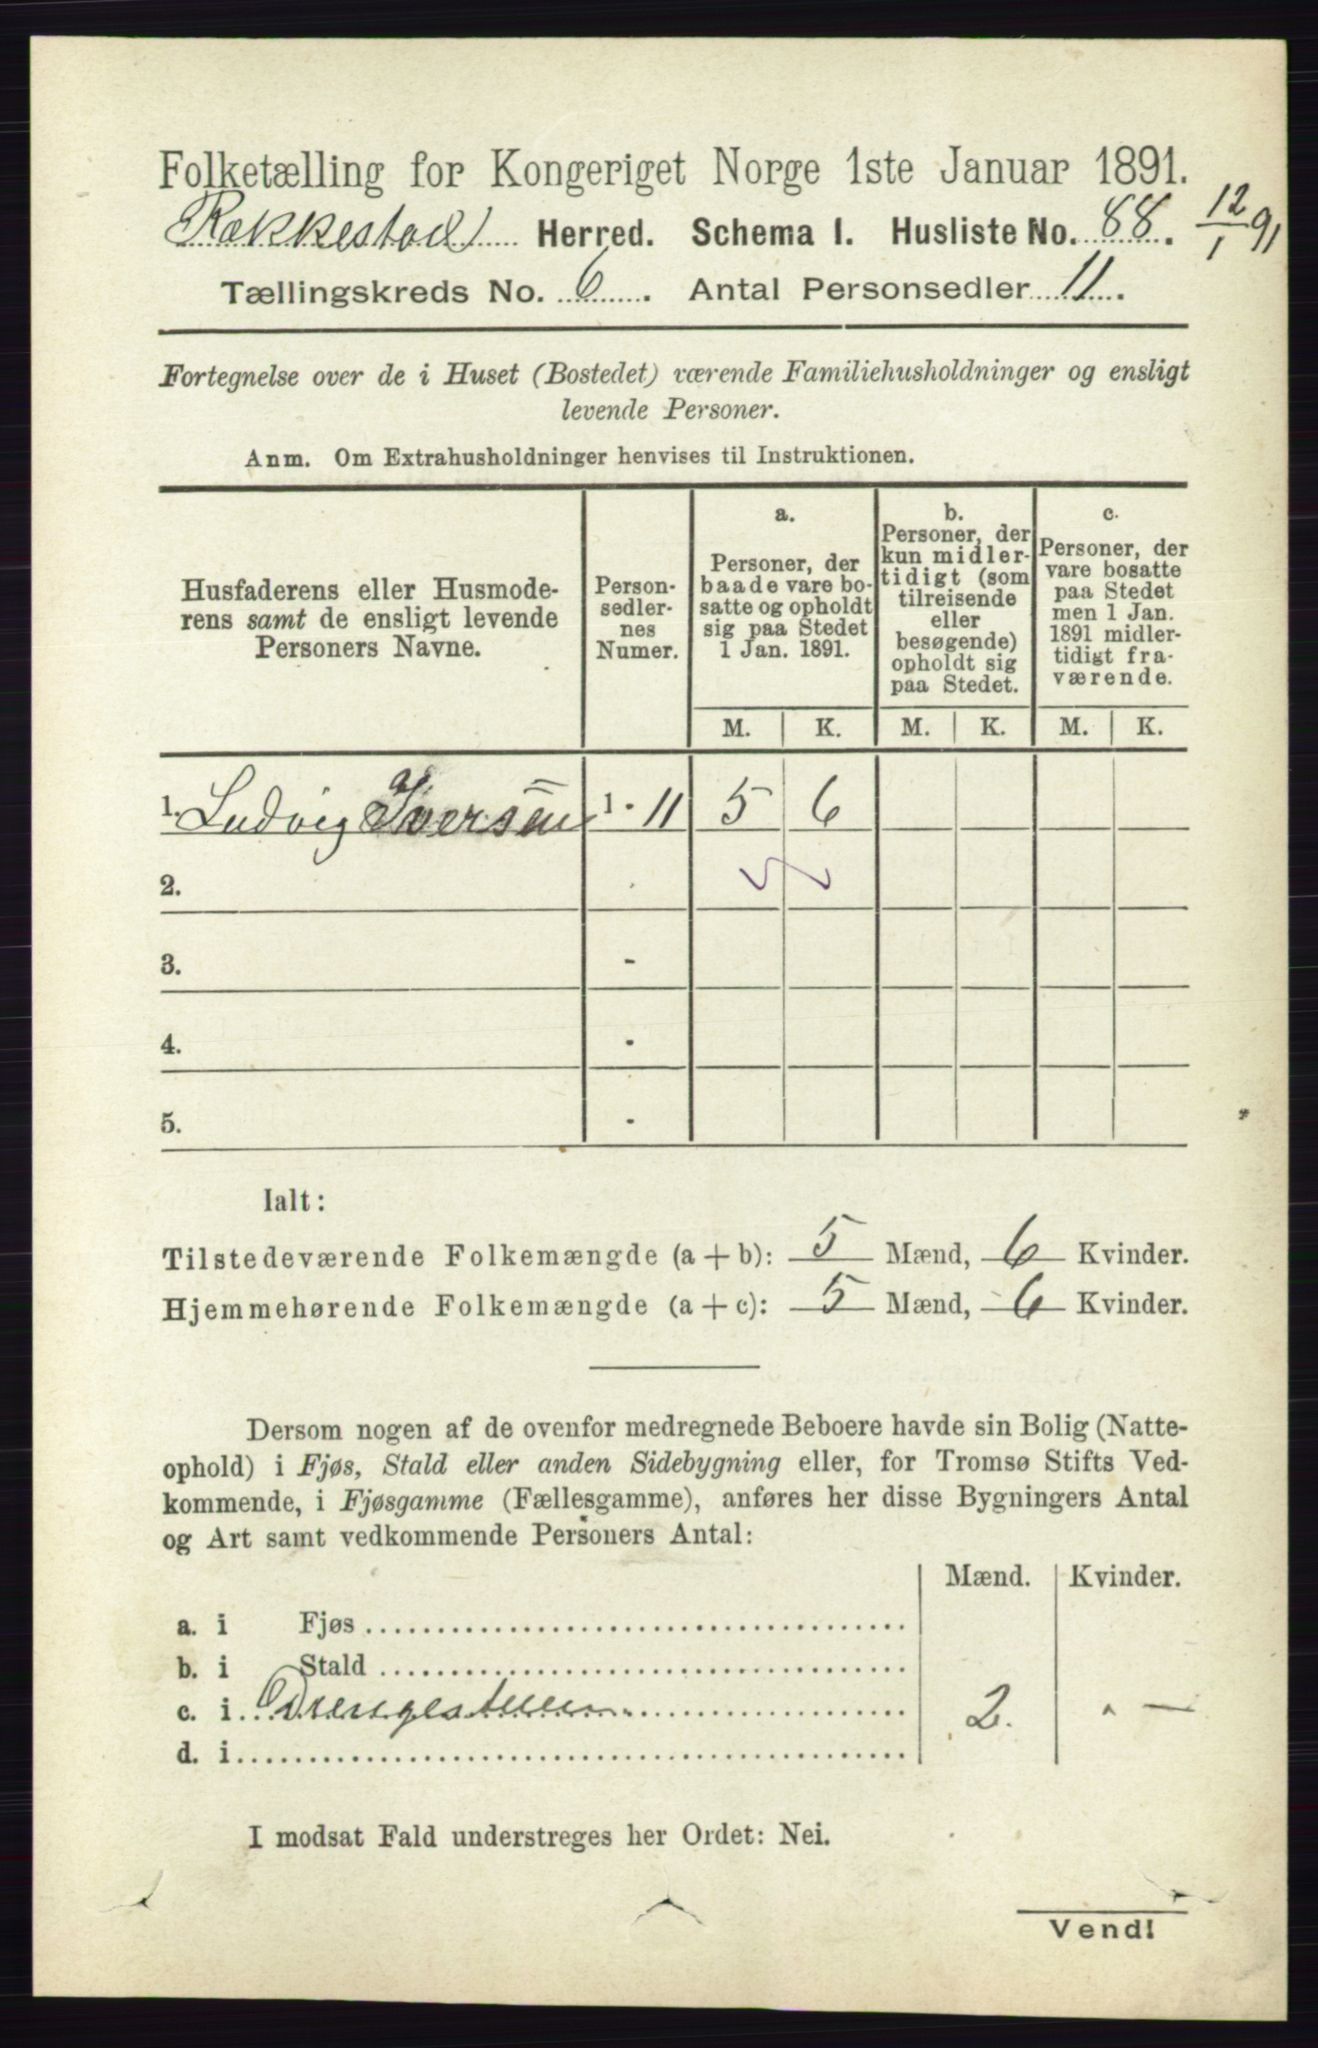 Folketælling for Kongeriget Norge 1ste Januar 1891.
Rakkestad Herred. Schema I. Husliste No. 88. 12/1 91
Tællingskreds No. 6. Antal Personsedler 11.
Fortegnelse over de i Huset (Bostedet) værende Familiehusholdninger og ensligt
levende Personer.
Anm. Om Extrahusholdninger henvises til Instruktionen.
Husfaderens eller Husmode-
rens samt de ensligt levende
Personers Navne.
Person-
sedler-
nes
Numer.
a.
Personer, der
baade vare bo-
satte og opholdt
sig paa Stedet
1 Jan. 1891.
b.
Personer, der
kun midler-
tidigt (som
tilreisende
eller
besøgende)
opholdt sig
paa Stedet.
c.
Personer, der
vare bosatte
paa Stedet
men 1 Jan.
1891 midler-
tidigt fra-
værende.
M. K. M. K. M. K.
1. Ludvig Iversen 1 - 11 5 6
2.
3. -
4. -
5. -
Ialt:
Tilstedeværende Folkemængde (a + b): 5 Mænd, 6 Kvinder.
Hjemmehørende Folkemængde (a + c): 5 Mænd, 6 Kvinder.
Dersom nogen af de ovenfor medregnede Beboere havde sin Bolig (Natte-
ophold) i Fjøs, Stald eller anden Sidebygning eller, for Tromsø Stifts Ved-
kommende, i Fjøsgamme (Fællesgamme), anføres her disse Bygningers Antal
og Art samt vedkommende Personers Antal:
Mænd. Kvinder.
a. i Fjøs
b. i Stald
c. i Drengestuen 2. -
d. i
I modsat Fald understreges her Ordet: Nei.
Vend!